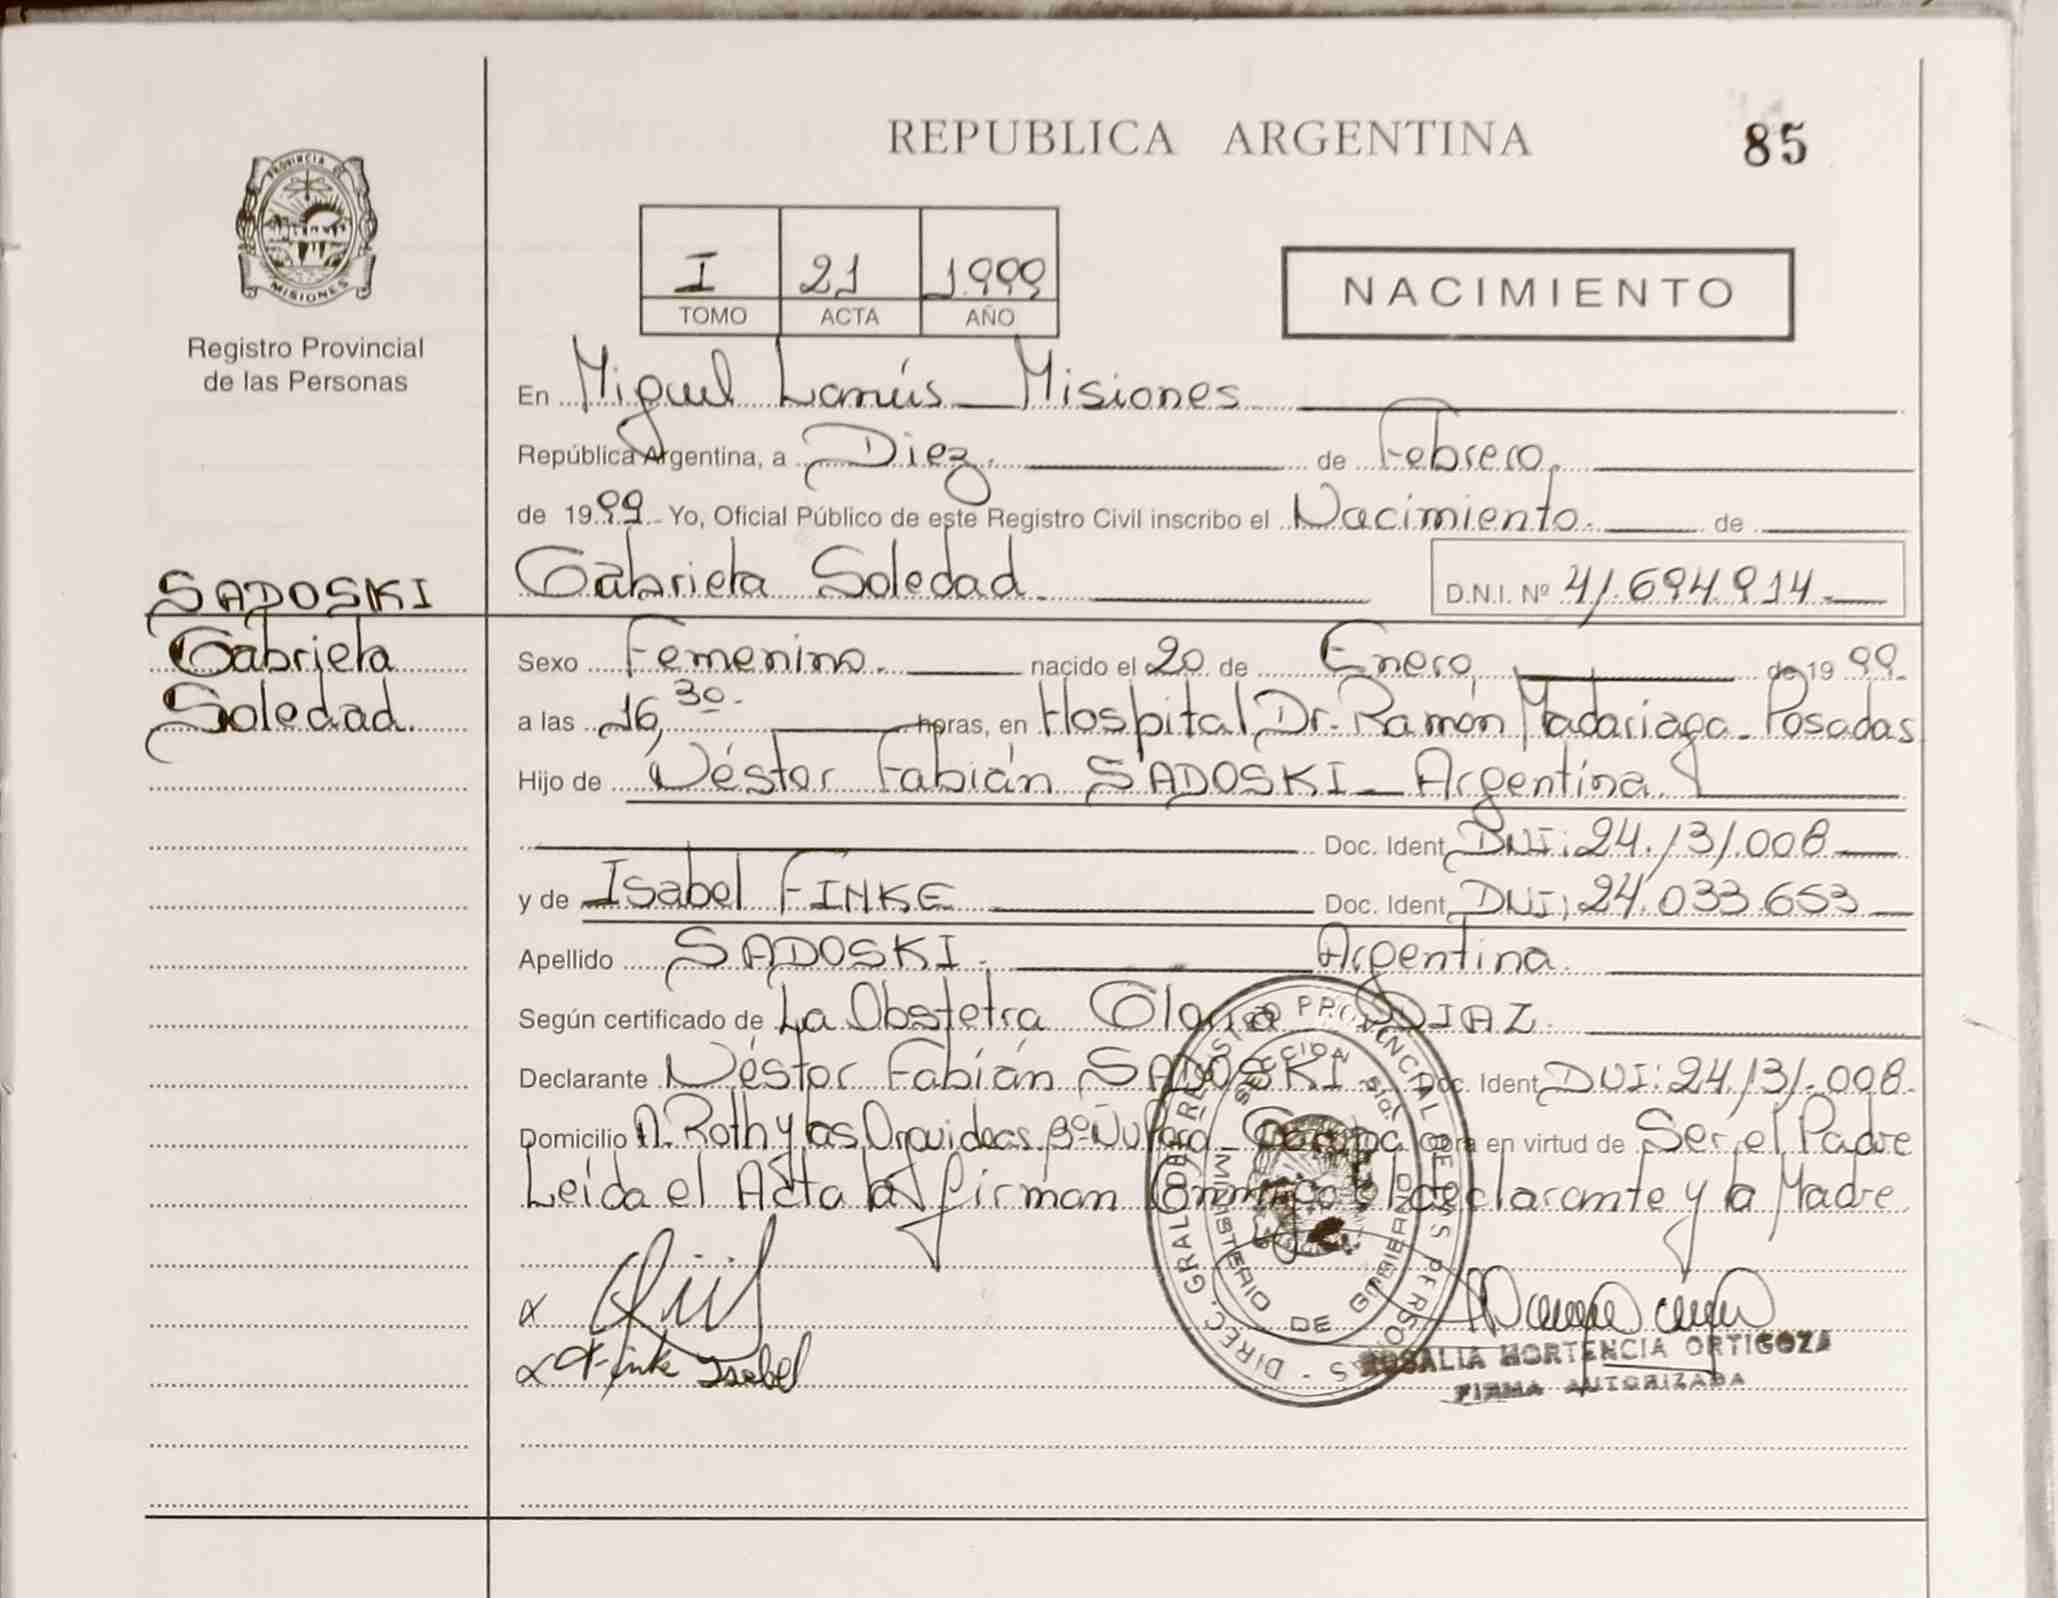 REPUBLICA ARGENTINA
85
PROVINCIA DE
MISIONES
Registro Provincial
de las Personas
I 21 1.999
TOMO ACTA AÑO
NACIMIENTO
En Miguel Lanús _ Misiones
República Argentina, a Diez. de Febrero,
de 1999 Yo, Oficial Público de este Registro Civil inscribo el Nacimiento. de
SADOSKI
Gabriela
Soledad.
Gabriela Soledad. D.N.I. Nº 41.694.914
Sexo Femenino. nacido el 20 de Enero, de 1999.
a las 16,30. horas, en Hospital Dr. Ramón Madariaga _ Posadas
Hijo de Néstor Fabián SADOSKI _ Argentina
Doc. Ident. DNI: 24.131.008
y de Isabel FINKE Doc. Ident. DNI: 24.033.653
Apellido SADOSKI. Argentina.
Según certificado de La Obstetra Gloria DIAZ.
Declarante Néstor Fabián SADOSKI Doc. Ident. DNI: 24.131.008.
Domicilio A. Roth y las Orquideas Bº Ñu Porá _ Garupá Obra en virtud de Ser el Padre
Leída el Acta la firman Conmigo el declarante y la Madre
Finke Isabel
DIREC. GRAL. DE REGISTRO PROVINCIAL DE LAS PERSONAS
MINISTERIO DE GOBIERNO
ROSALIA HORTENCIA ORTIGOZA
FIRMA AUTORIZADA